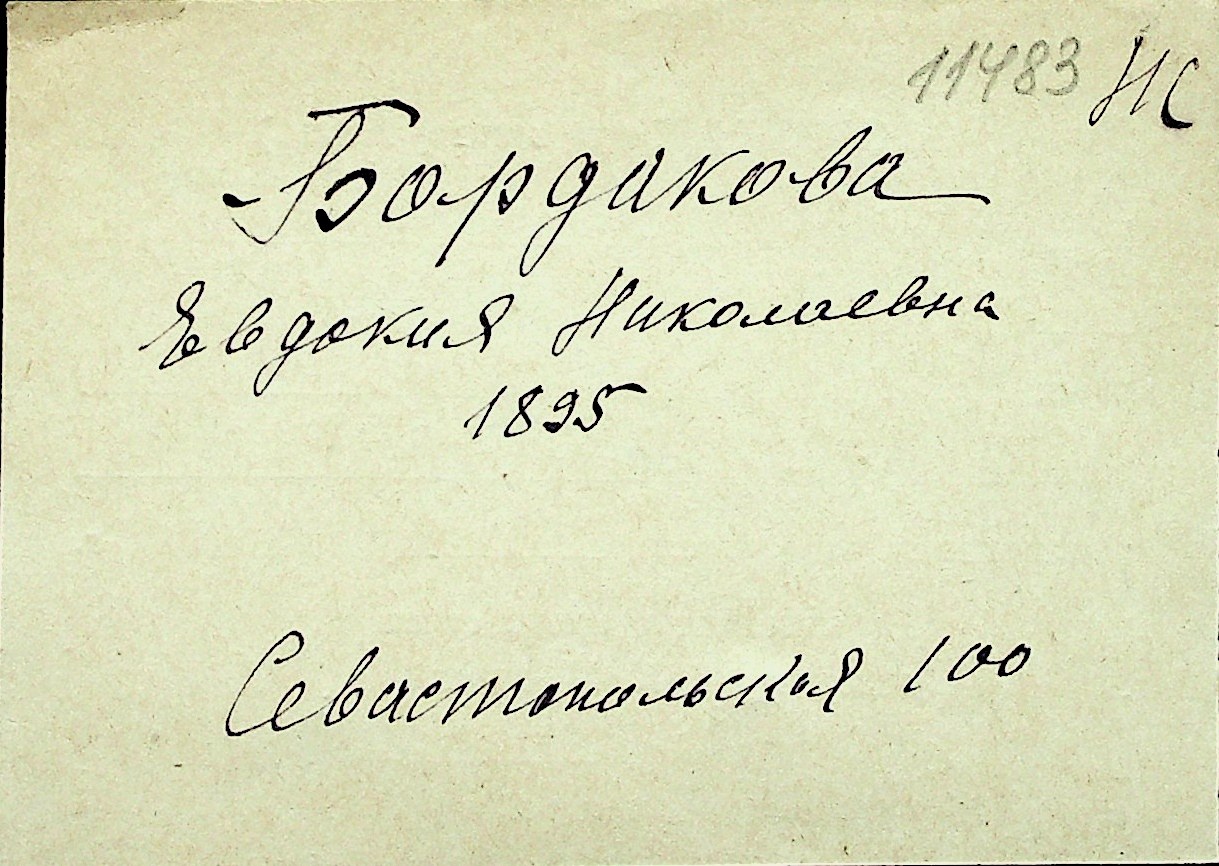 11483 НС
Бордакова
Евдокия Николаевна
1895
Севастопольская 100